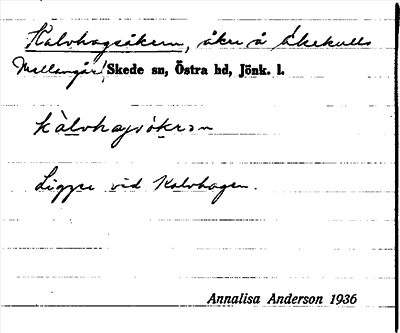 Kalvhagsåkern, åker å Ekekulls
Mellangård Skede sn, Östra hd, Jönk. l.
kàlvhagsȯ́kərn
Ligger vid Kalvhagen.
Annalisa Anderson 1936